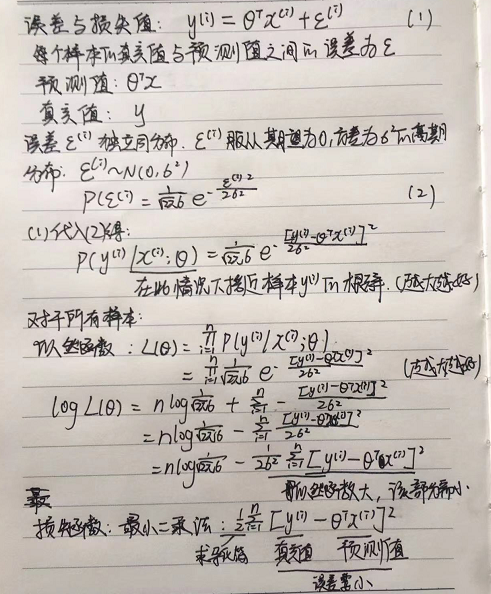 误差与损失值: y⁽ⁱ⁾ = θᵀx⁽ⁱ⁾ + ε⁽ⁱ⁾ (1)
每个样本的真实值与预测值之间的误差为ε
预测值: θᵀx
真实值: y
误差 ε⁽ⁱ⁾ 独立同分布. ε⁽ⁱ⁾ 服从期望为0,方差为6²的高斯
分布. ε⁽ⁱ⁾~N(0,6²)
P(ε⁽ⁱ⁾) = 1/(√2π 6) e^(- ε⁽ⁱ⁾²/26²) (2)
(1)代入(2)得:
P(y⁽ⁱ⁾|x⁽ⁱ⁾;θ) = 1/(√2π 6) e^(- [y⁽ⁱ⁾-θᵀx⁽ⁱ⁾]²/26²)
在此情况下接近样本y⁽ⁱ⁾的概率. (越大越好)
对于所有样本:
似然函数: L(θ) = ∏ᵢ₌₁ⁿ P(y⁽ⁱ⁾|x⁽ⁱ⁾;θ)
= ∏ᵢ₌₁ⁿ 1/(√2π 6) e^(- [y⁽ⁱ⁾-θᵀx⁽ⁱ⁾]²/26²) (越大越好)
log L(θ) = n log 1/(√2π 6) + ∑ᵢ₌₁ⁿ - [y⁽ⁱ⁾-θᵀx⁽ⁱ⁾]²/26²
= n log 1/(√2π 6) - ∑ᵢ₌₁ⁿ [y⁽ⁱ⁾-θᵀx⁽ⁱ⁾]²/26²
= n log 1/(√2π 6) - 1/26² ∑ᵢ₌₁ⁿ [y⁽ⁱ⁾-θᵀx⁽ⁱ⁾]²
似然函数大, 该部分需小.
最
损失函数: 最小二乘法: 1/2 ∑ᵢ₌₁ⁿ [y⁽ⁱ⁾ - θᵀx⁽ⁱ⁾]²
真实值 预测值
误差需小